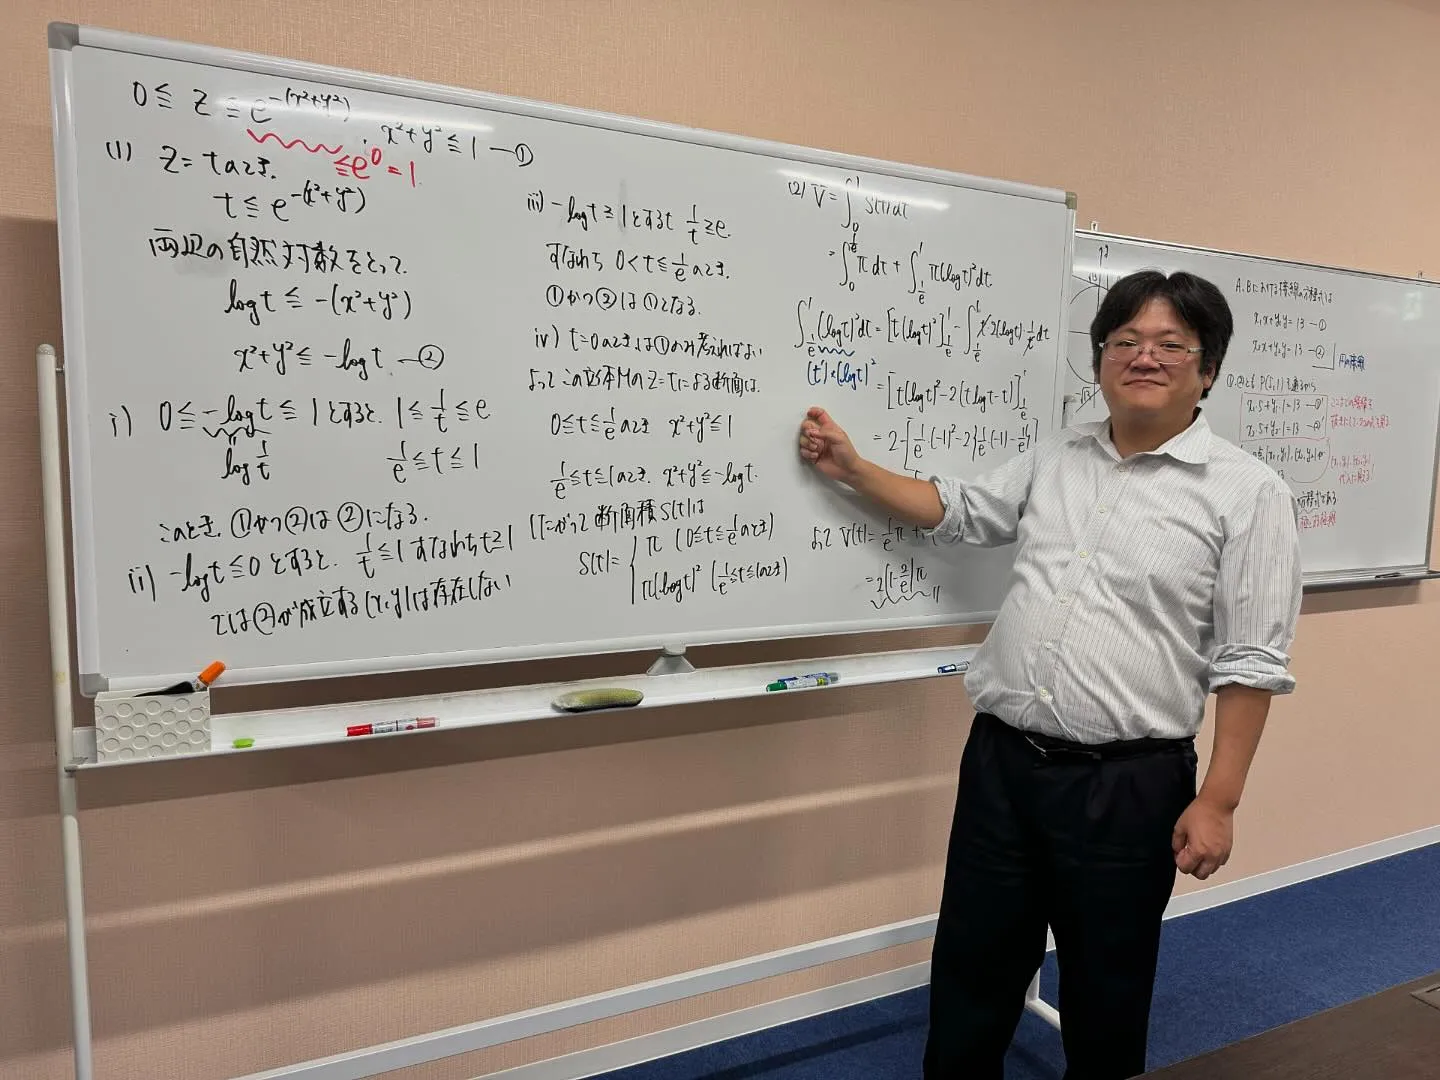 0≦ z ≦ e^{-(x²+y²)}, x²+y²≦1 —①
≦e⁰=1.
(1) z=tのとき.
t≦e^{-(x²+y²)}
両辺の自然対数をとって.
log t ≦ -(x²+y²)
x²+y²≦ -log t. —②
i) 0≦ -log t ≦ 1とすると. 1≦ 1/t ≦e
log 1/t
1/e ≦t≦1
このとき. ①かつ②は②になる.
ii) -log t≦0 とすると. 1/t ≦1 すなわち t≧1
では②が成立する(x,y)は存在しない
iii) -log t≧1とすると 1/t ≧e.
すなわち 0<t≦1/e のとき.
①かつ②は①となる.
iv) t=0のときは①のみ考えればよい
よってこの立体Mのz=tによる断面は.
0≦t≦1/e のとき x²+y²≦1
1/e≦t≦1のとき. x²+y²≦-log t.
したがって断面積S(t)は
S(t)= { π (0≦t≦1/e のとき)
π(-log t)² (1/e≦t≦1のとき)
(2) V=∫₀¹ S(t)dt
=∫₀^{1/e} π dt + ∫_{1/e}^1 π(log t)² dt
∫_{1/e}^1 (log t)² dt = [t(log t)²]_{1/e}^1 - ∫_{1/e}^1 t·2(log t)·1/t dt
(t')×(log t)²
= [t(log t)² -2(t log t - t)]_{1/e}^1
= 2-[1/e·(-1)²-2{1/e(-1)-1/e}]
よって V(t)= 1/e π +
=2(1-2/e)π
A.Bにおける接線の方程式は
x₁x+y₁y=13 —①
x₂x+y₂y=13 —②
円の接線
①,②とも P(5,1)を通るから
x₁·5+y₁·1=13 —①'
x₂·5+y₂·1=13 —②'